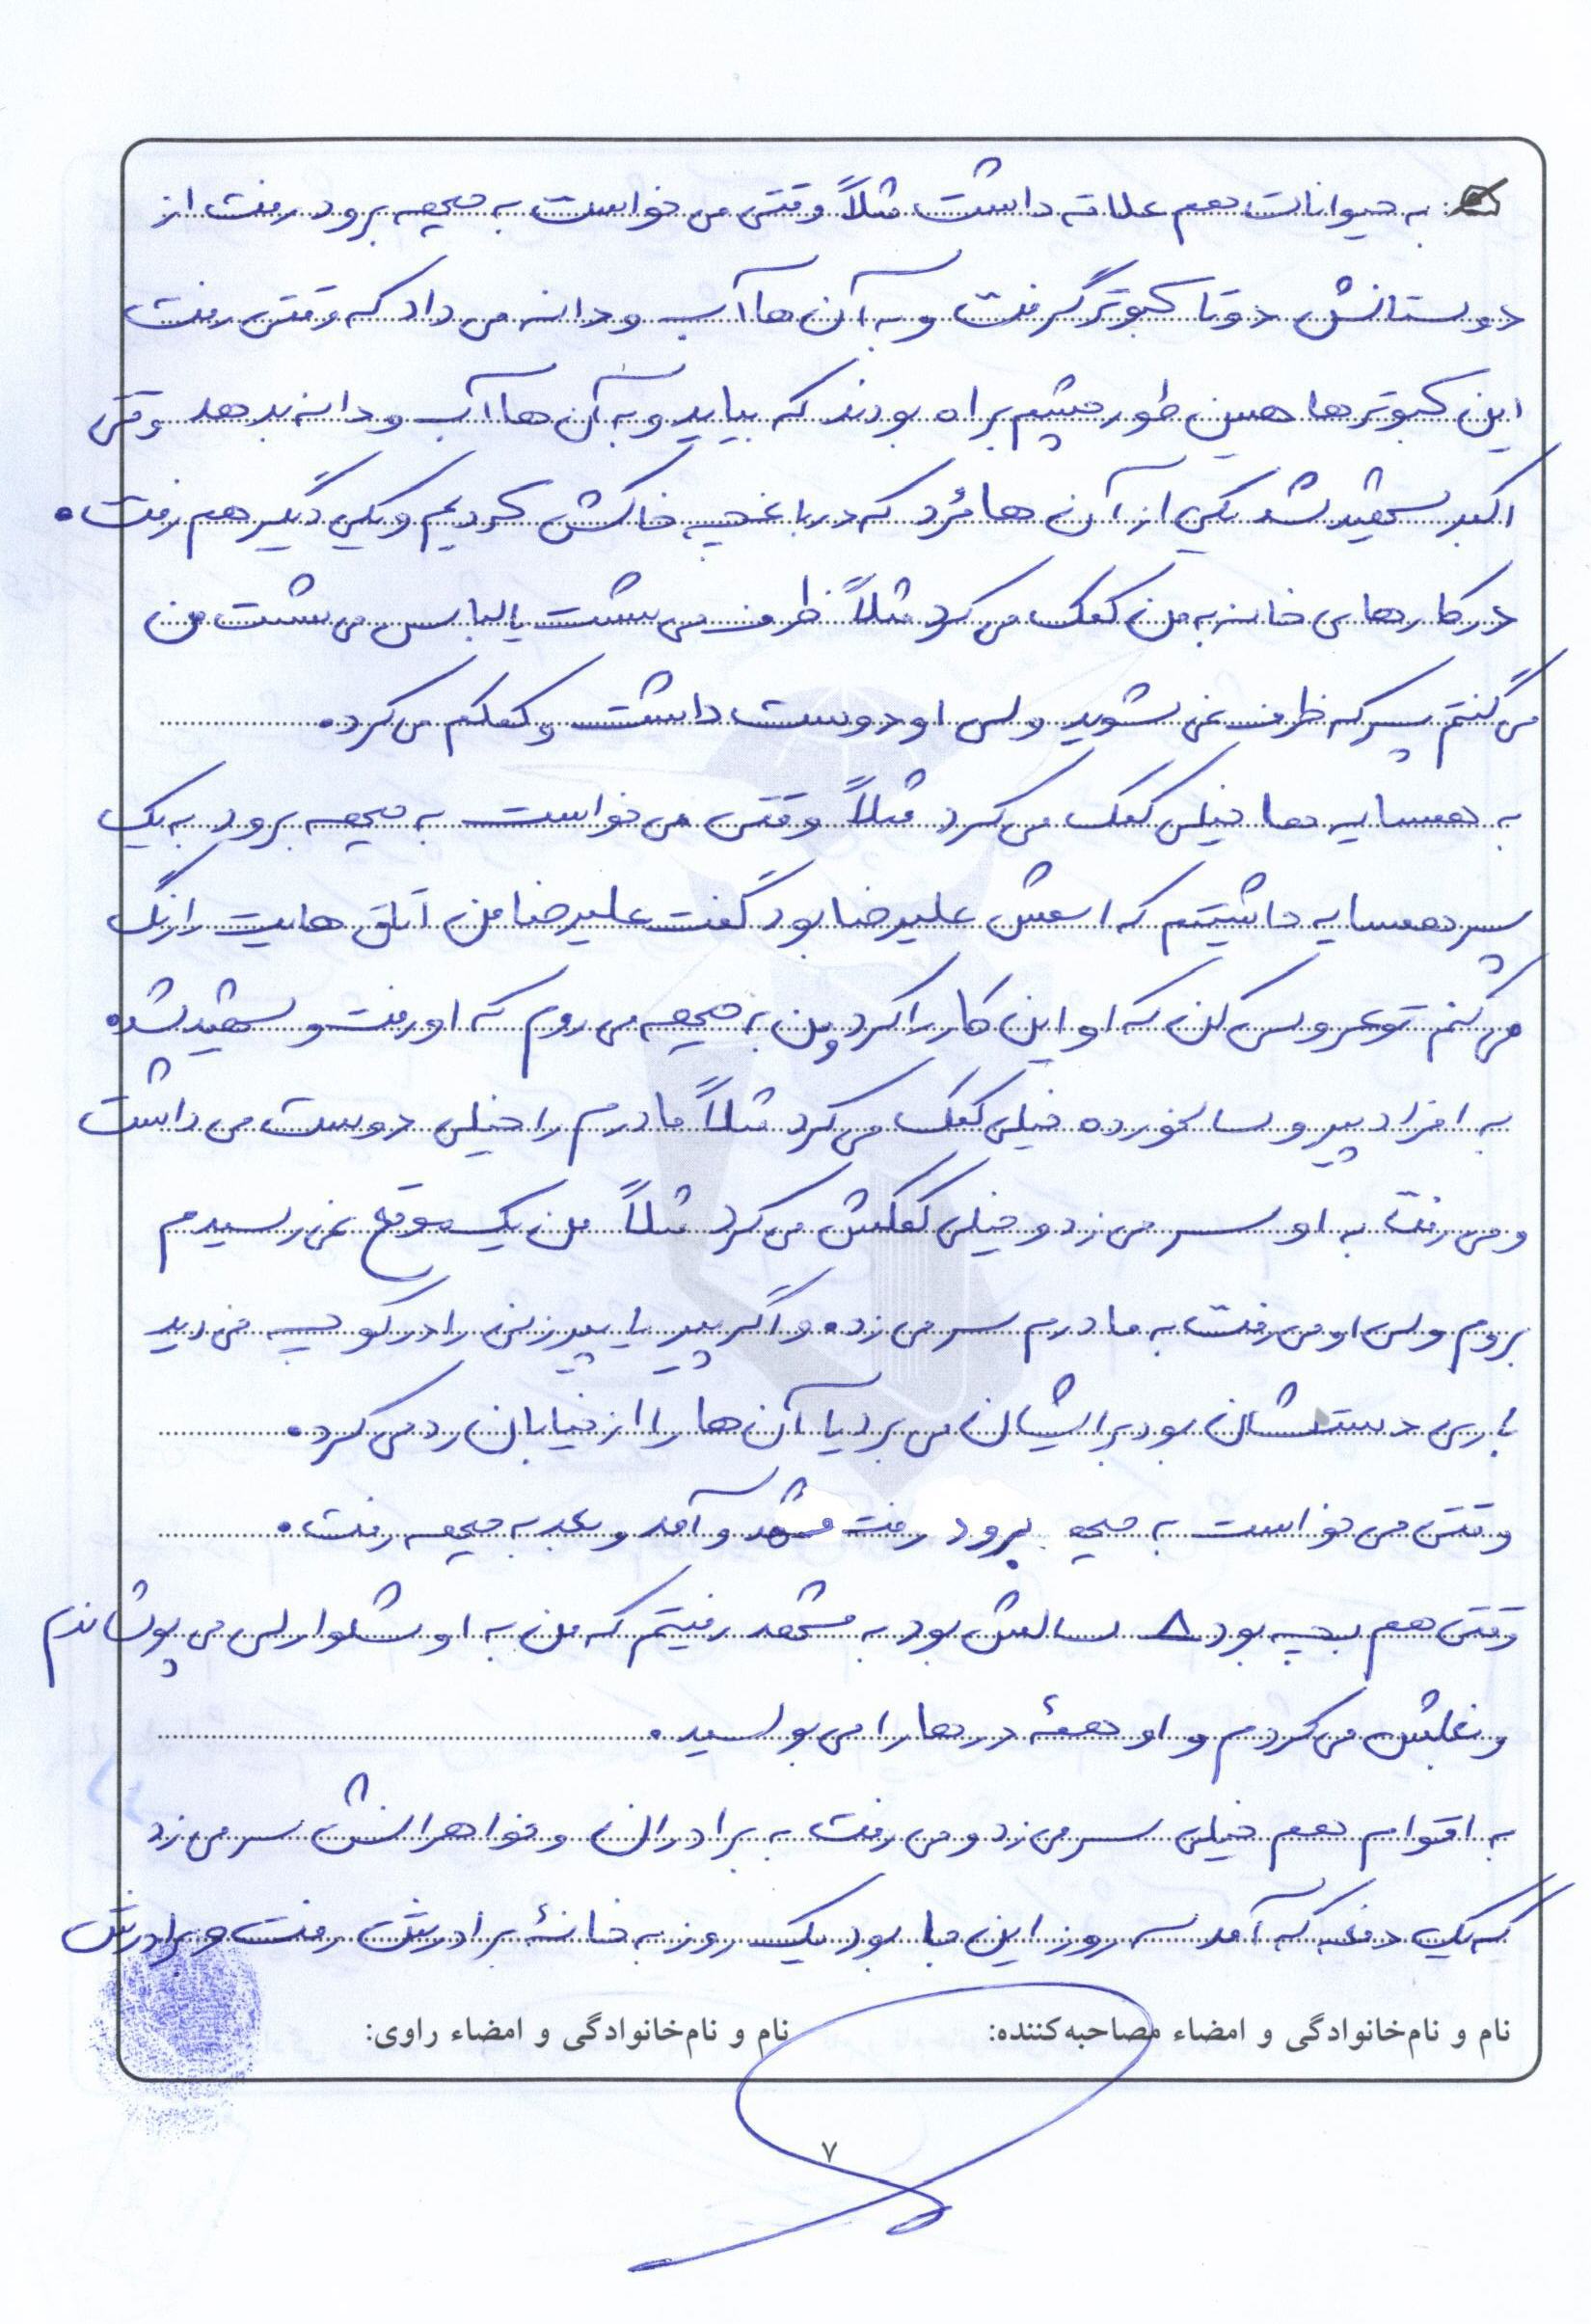 به حیوانات هم علاقه داشت مثلاً وقتی می خواست به جبهه برود رفت از
دوستانش دوتا کبوتر گرفت و به آن ها آب و دانه می داد که وقتی رفت
این کبوترها همین طور چشم براه بودند که بیاید و به آن ها آب و دانه بدهد وقتی
اکبر شهید شد یکی از آن ها مُرد که در باغچه خاکش کردیم و یکی دیگر هم رفت.
در کارهای خانه به من کمک می کرد مثلاً ظرف می شست یا لباس می شست من
می گفتم پسر که ظرف نمی شوید ولی او دوست داشت و کمکم می کرد.
به همسایه ها خیلی کمک می کرد مثلاً وقتی می خواست به جبهه برود به یک
پسر همسایه داشتیم که اسمش علیرضا بود گفت علیرضا من اتاق هایت را رنگ
می کنم تو عروسی کن که او این کار را کرد و من به جبهه می روم که او رفت و شهید شد.
به افراد پیر و سالخورده خیلی کمک می کرد مثلاً مادرم را خیلی دوست می داشت
و می رفت به او سر می زد و خیلی کمکش می کرد مثلاً من یک موقع نمی رسیدم
بروم ولی او می رفت به مادرم سر می زد. و اگر پیر یا پیرزنی را در کوچه می دید
باری دستشان بود برایشان می برد یا آن ها را از خیابان رد می کرد.
وقتی می خواست به جبهه برود رفت مشهد و آمد و بعد به جبهه رفت.
وقتی هم بچه بود ۸ سالش بود به مشهد رفتیم که من به او شلوار لی می پوشاندم
و بغلش می کردم و او همهٔ درها را می بوسید.
به اقوام هم خیلی سر می زد و می رفت به برادران و خواهرانش سر می زد
که یک دفعه که آمد سه روز این جا بود یک روز به خانهٔ برادرش رفت و برادرش
نام و نام‌خانوادگی و امضاء مصاحبه‌کننده: نام و نام‌خانوادگی و امضاء راوی:
۷